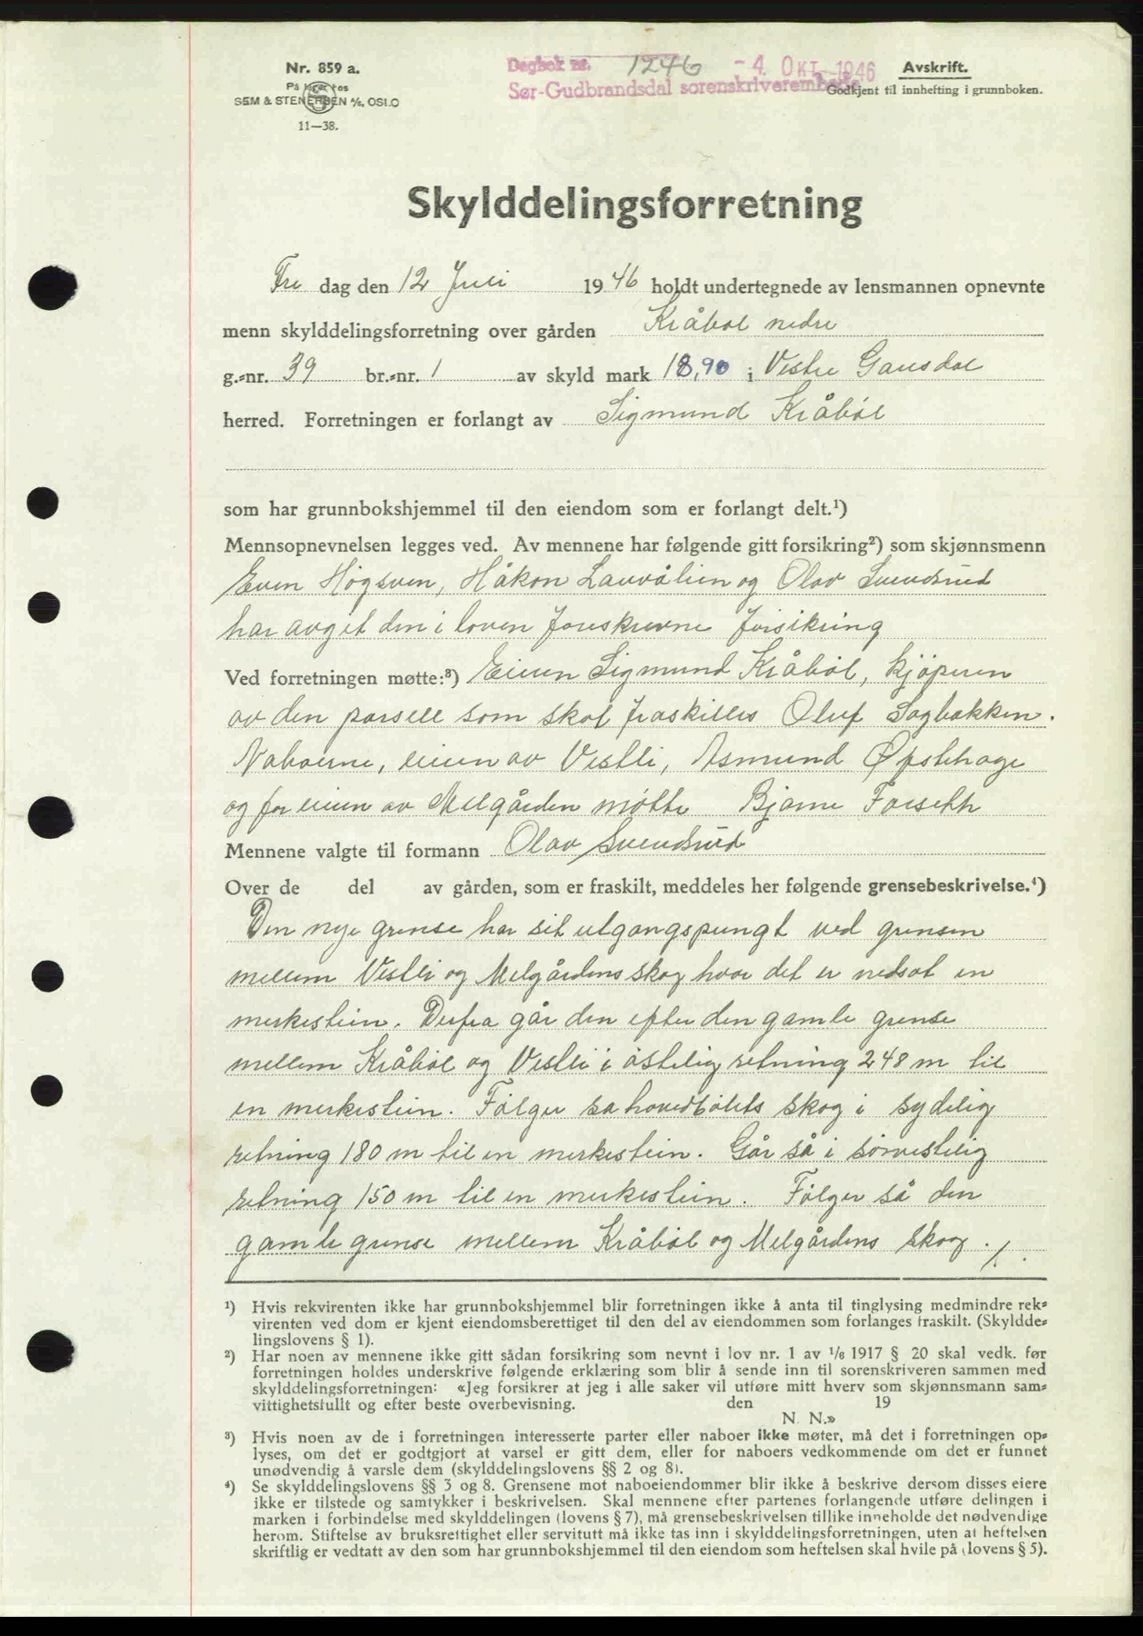 Nr. 859 a.
På lager hos
SEM & STENERSEN A/S, OSLO
11—38.
Dagbok nr. 1246 - 4. OKT 1946
Sør-Gudbrandsdal sorenskriverembede
Avskrift.
Godkjent til innhefting i grunnboken.
Skylddelingsforretning
Fre dag den 12 Juli 1946 holdt undertegnede av lensmannen opnevnte
menn skylddelingsforretning over gården Kråbøl nedre
g.=nr. 39 br.=nr. 1 av skyld mark 18,90 i Vestre Gausdal
herred. Forretningen er forlangt av Sigmund Kråbøl
som har grunnbokshjemmel til den eiendom som er forlangt delt.¹)
Mennsopnevnelsen legges ved. Av mennene har følgende gitt forsikring²) som skjønnsmenn
Even Högsven, Håkon Lauvålien og Olav Svendsrud
har avgit den i loven foreskrevne forsikring
Ved forretningen møtte:³) Eieren Sigmund Kråböl, kjöperen
av den parsell som skal fraskilles Oluf Sagbakken.
Naboerne, eieren av Vestli, Asmund Øpstehage
og for eieren av Melgården mötte Bjarne Forseth
Mennene valgte til formann Olav Svendsrud
Over de del av gården, som er fraskilt, meddeles her følgende grensebeskrivelse.⁴)
Den nye grense har sit utgangspungt ved grensen
mellem Vestli og Melgårdens skog hvor det er nedsat en
merkestein. Derfra går den efter den gamle grense
mellem Kråböl og Vestli i östelig retning 248 m til
en merkestein. Fölger sa hovedbölets skog i sydelig
retning 180 m til en merkestein. Går så i sörvestelig
retning 150 m til en merkestein. Fölger så den
gamle grense mellem Kråböl og Melgårdens skog ./.
¹) Hvis rekvirenten ikke har grunnbokshjemmel blir forretningen ikke å anta til tinglysing medmindre rek=
virenten ved dom er kjent eiendomsberettiget til den del av eiendommen som forlanges fraskilt. (Skyldde=
lingslovens § 1).
²) Har noen av mennene ikke gitt sådan forsikring som nevnt i lov nr. 1 av 1/6 1917 § 20 skal vedk. før
forretningen holdes underskrive følgende erklæring som blir å sende inn til sorenskriveren sammen med
skylddelingsforretningen: «Jeg forsikrer at jeg i alle saker vil utføre mitt hverv som skjønnsmann sam=
vittighetsfullt og efter beste overbevisning. den 19
N. N.»
³) Hvis noen av de i forretningen interesserte parter eller naboer ikke møter, må det i forretningen op=
lyses, om det er godtgjort at varsel er gitt dem, eller for naboers vedkommende om det er funnet
unødvendig å varsle dem (skylddelingslovens §§ 2 og 8).
⁴) Se skylddelingslovens §§ 3 og 8. Grensene mot naboeiendommer blir ikke å beskrive dersom disses eiere
ikke er tilstede og samtykker i beskrivelsen. Skal mennene efter partenes forlangende utføre delingen i
marken i forbindelse med skylddelingen (lovens § 7), må grensebeskrivelsen tillike inneholde det nødvendige
herom. Stiftelse av bruksrettighet eller servitutt må ikke tas inn i skylddelingsforretningen, uten at heftelsen
skriftlig er vedtatt av den som har grunnbokshjemmel til den eiendom som heftelsen skal hvile på (lovens § 5).